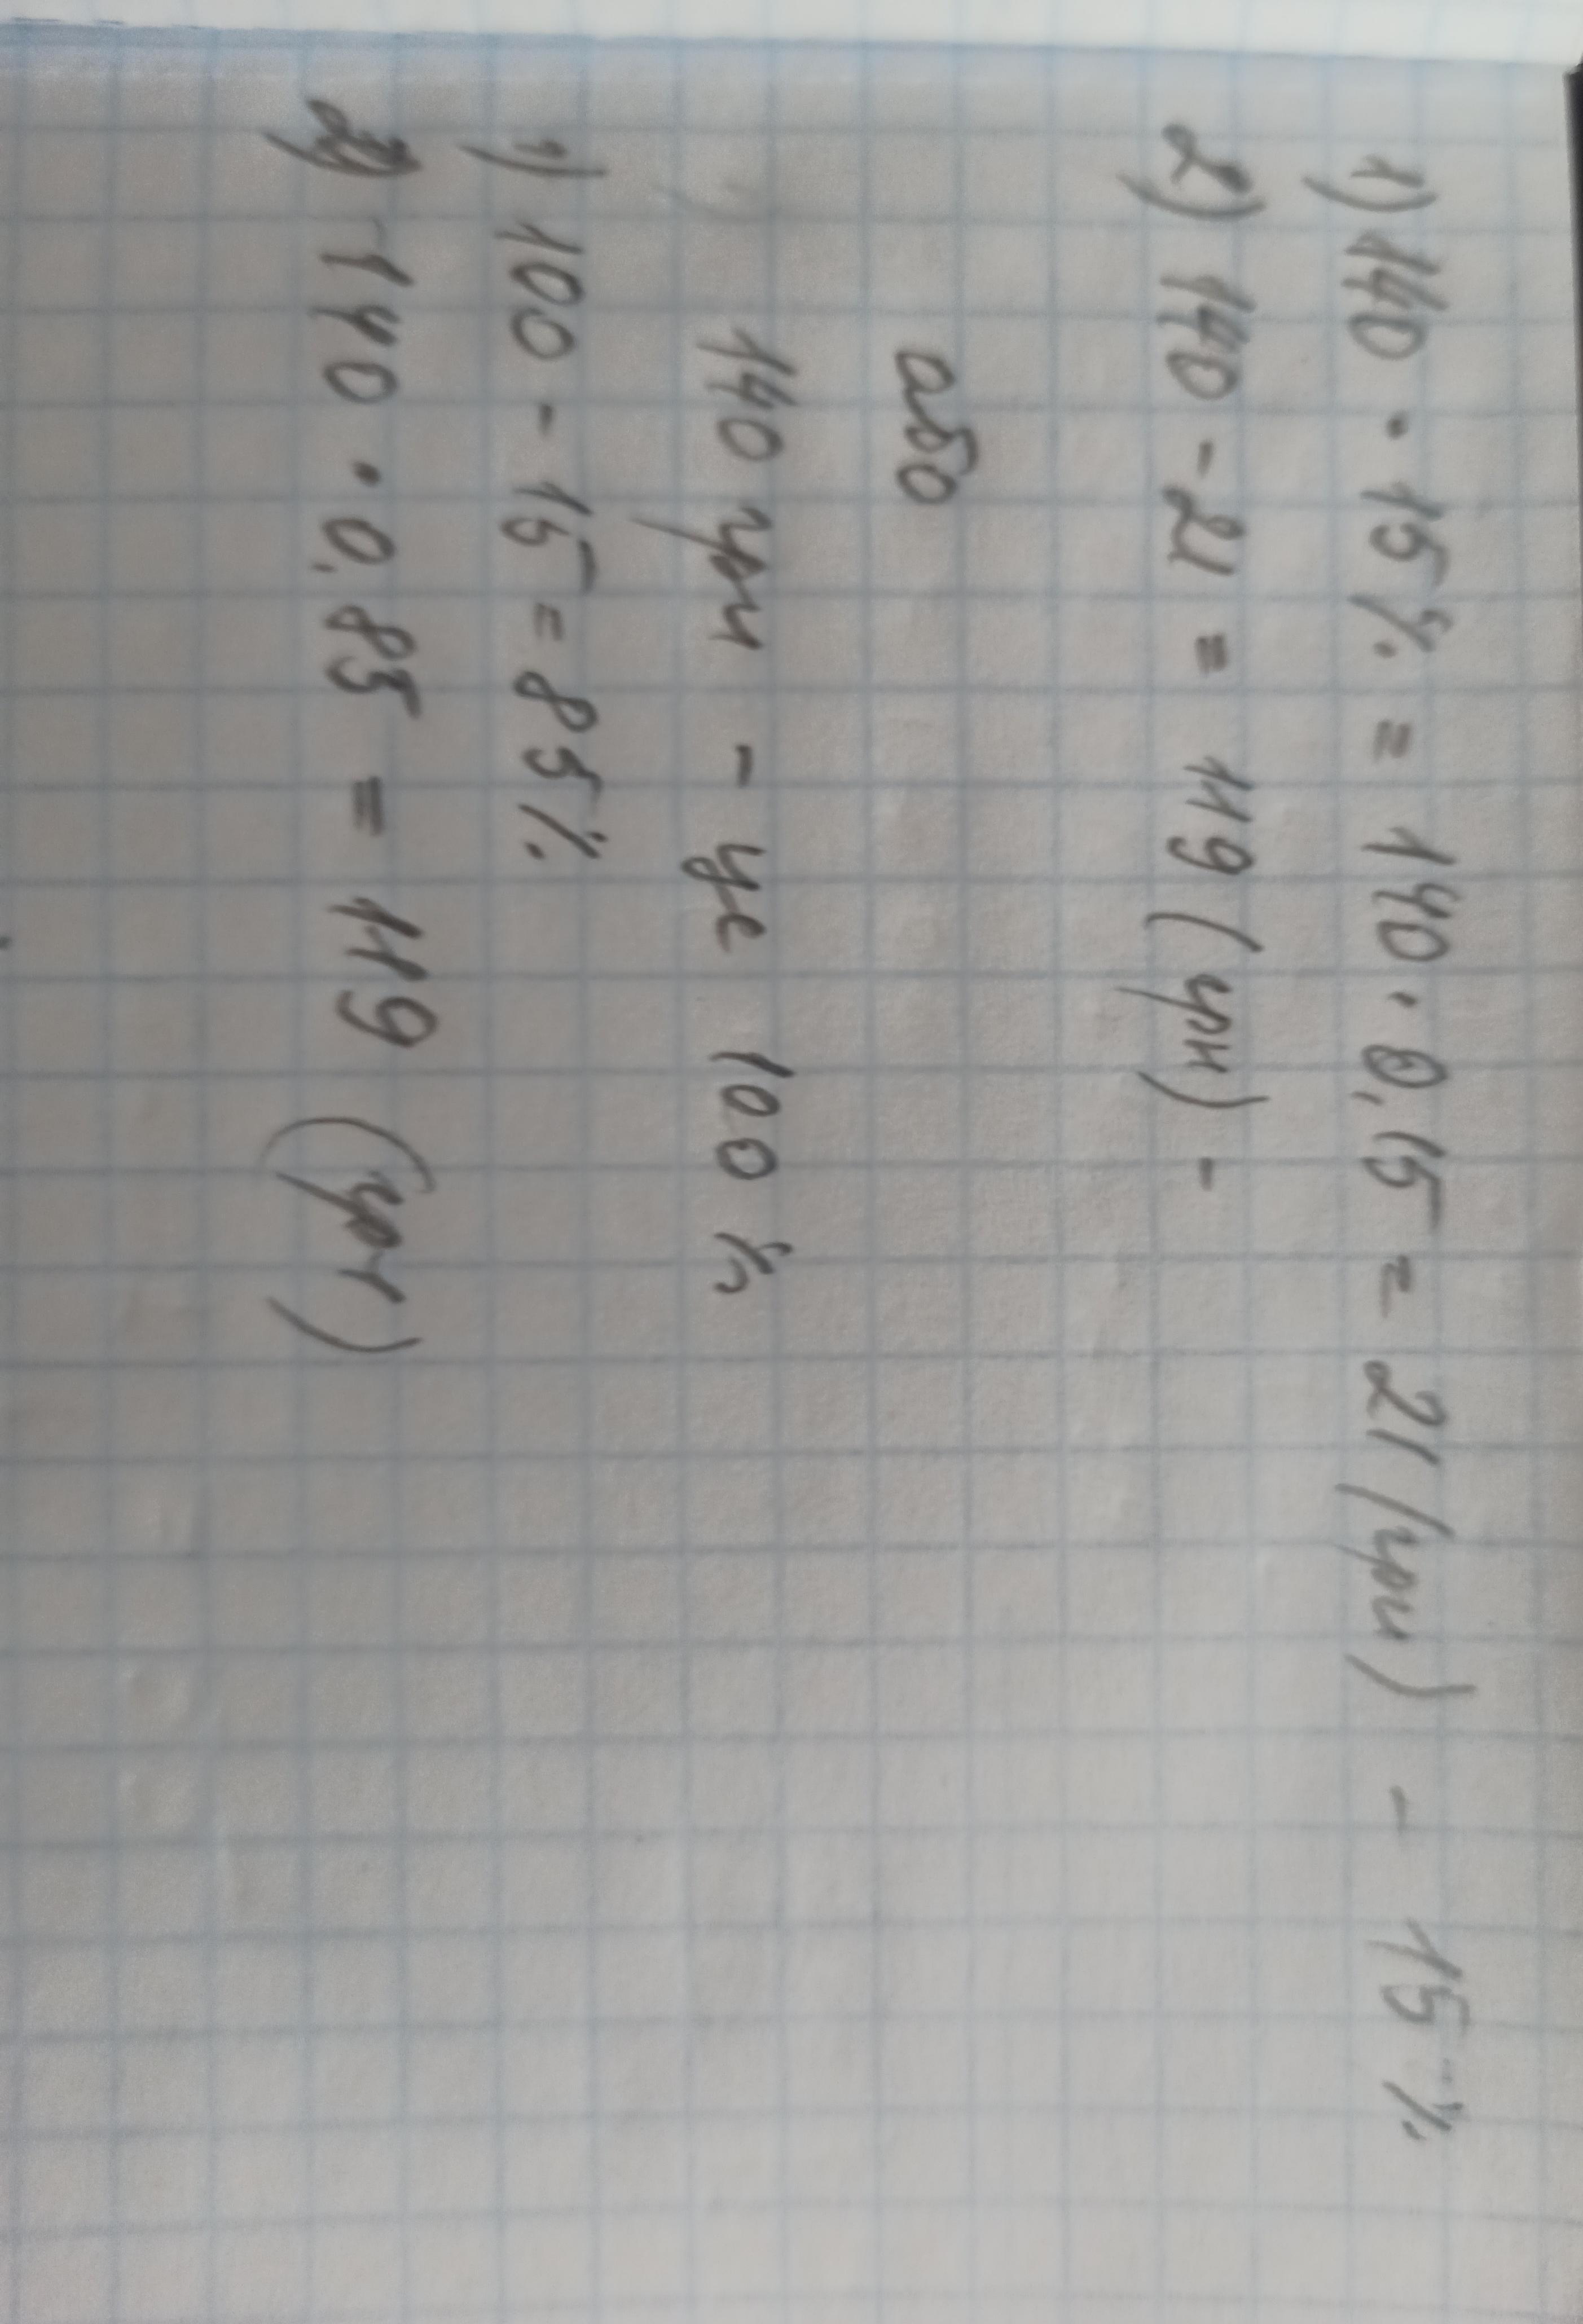 1) 140 · 15% = 140 · 0,15 = 21 (грн) - 15%
2) 140 - 21 = 119 (грн) -
або
140 грн - це 100%
1) 100 - 15 = 85%
2) 140 · 0,85 = 119 (грн)